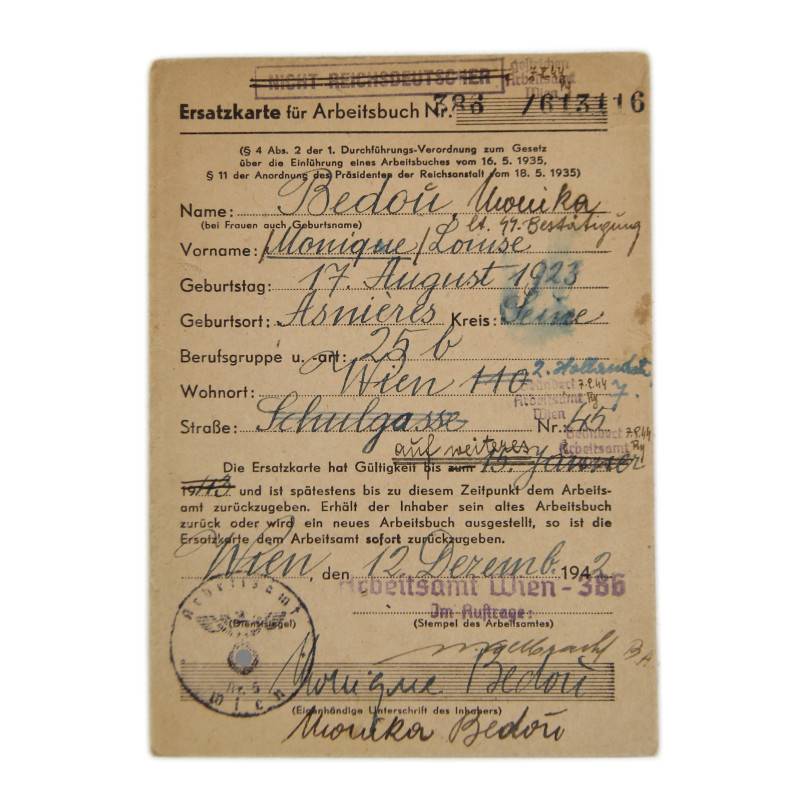 NICHT-REICHSDEUTSCHER
gestrichen 7.2.44
Arbeitsamt
Wien
Ersatzkarte für Arbeitsbuch Nr. 386 /613116
(§ 4 Abs. 2 der 1. Durchführungs-Verordnung zum Gesetz
über die Einführung eines Arbeitsbuches vom 16. 5. 1935,
§ 11 der Anordnung des Präsidenten der Reichsanstalt vom 18. 5. 1935)
Name: Bedoü, Monika
(bei Frauen auch Geburtsname) lt. Bestätigung
Vorname: /Monique/ Louise
Geburtstag: 17. August 1923
Geburtsort: Asnières Kreis: Seine
Berufsgruppe u. -art: 25 b
Wohnort: Wien 110 2. Hollandstr. 7.
Geändert 7.2.44
Arbeitsamt
Wien
Straße: Schulgasse Nr. 65
Geändert 7.2.44
Arbeitsamt
auf weiteres
Die Ersatzkarte hat Gültigkeit bis zum 15. Jänner
1943 und ist spätestens bis zu diesem Zeitpunkt dem Arbeits-
amt zurückzugeben. Erhält der Inhaber sein altes Arbeitsbuch
zurück oder wird ein neues Arbeitsbuch ausgestellt, so ist die
Ersatzkarte dem Arbeitsamt sofort zurückzugeben.
Wien, den 12. Dezemb. 1942
Arbeitsamt Wien - 386
Im Auftrage:
(Dienstsiegel) (Stempel des Arbeitsamtes)
Arbeitsamt
Nr. 5
Wien
Monique Bedoü
(Eigenhändige Unterschrift des Inhabers)
Monika Bedoü